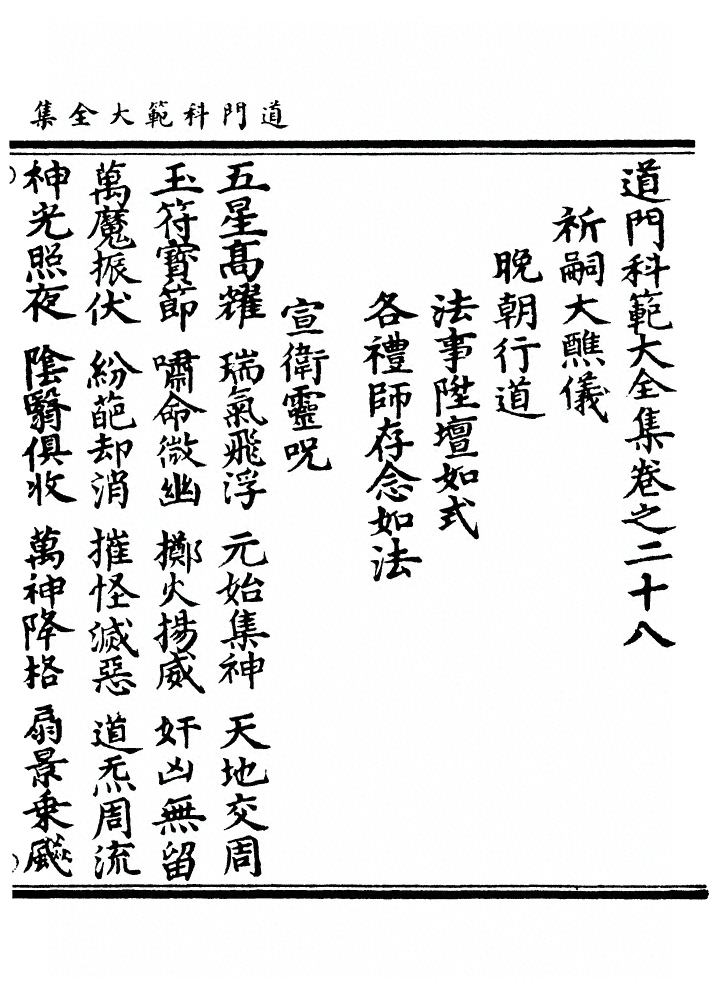 道門科範大全集
道門科範大全集卷之二十八
祈嗣大醮儀
晚朝行道
法事陞壇如式
各禮師存念如法
宣衛靈呪
五星高耀　瑞氣飛浮　元始集神　天地交周
玉符寶節　嘯命微幽　擲火揚威　奸凶無留
萬魔振伏　紛葩却消　摧怪滅惡　道炁周流
神光照夜　陰翳俱收　萬神降格　扇景乗飈